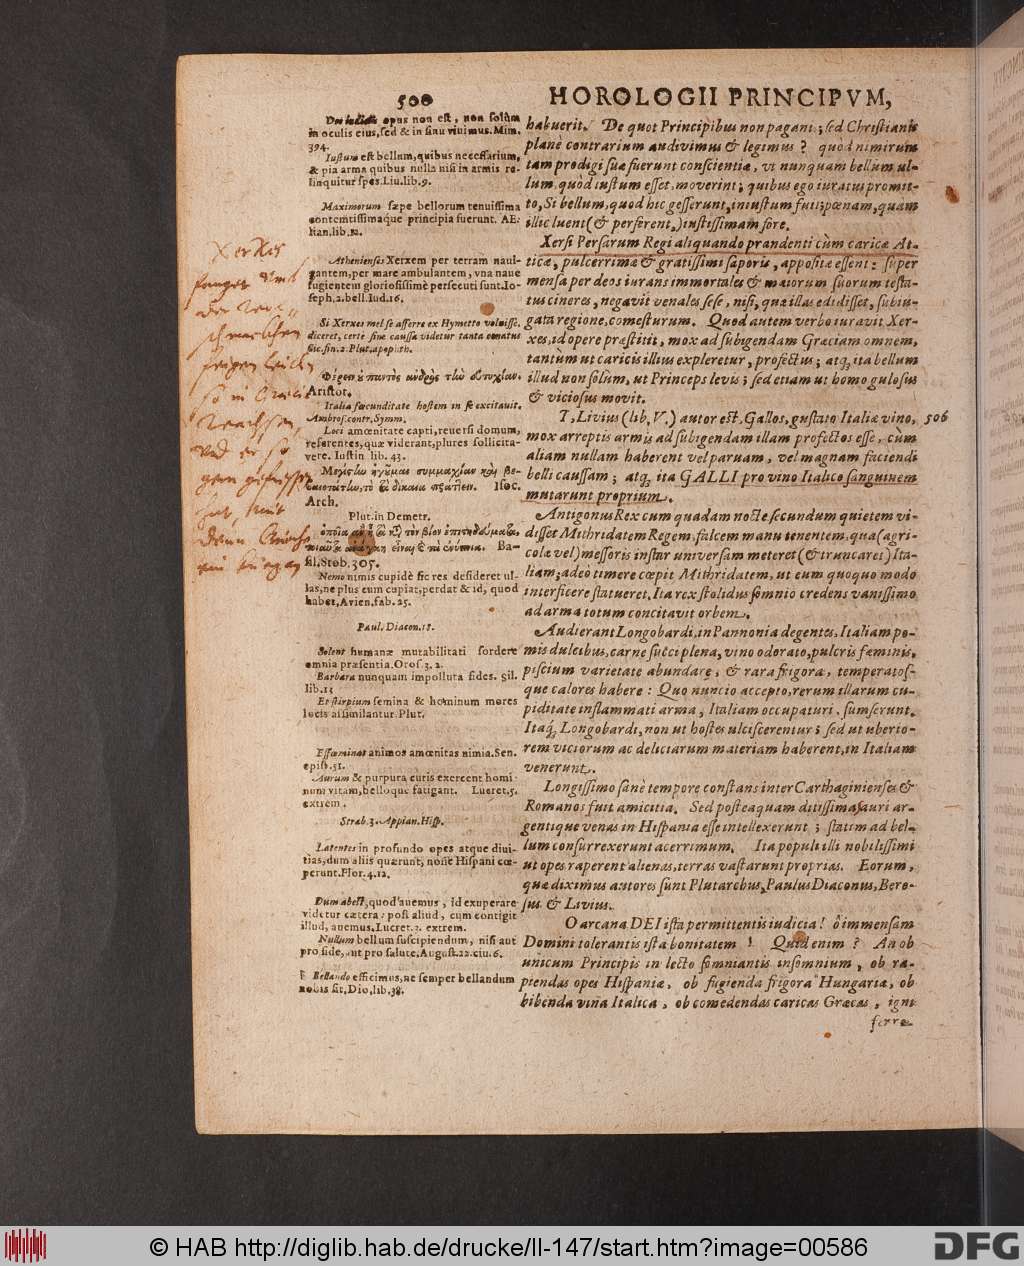 500
HOROLOGII PRINCIPVM,
opus non est, non solùm
in oculis eius, sed & in sinu viuimus. Mim.
394.
Iustum est bellum, quibus necessarium,
& pia arma quibus nulla nisi in armis re-
linquitur spes. Liu. lib. 9.
Maximorum sæpe bellorum tenuissima
contemtissimaque principia fuerunt. AE-
lian. lib. 12.
Atheniensis Xerxem per terram naui-
gantem, per mare ambulantem, vna naue
fugientem gloriosissimè persecuti sunt. Io-
seph. 2. bell. Iud. 16.
Si Xerxes mel se afferre ex Hymetto voluisse,
diceret, certè sine caussa videtur tanta conatus
Cic. fin. 2. Plut. apophth.
Aristor.
Italia fœcunditate hostem in se excitauit.
Ambros. contr. Symm.
Loci amœnitate capti, reuersi domum,
referentes, quæ viderant, plures sollicita-
vere. Iustin lib. 43.
Isoc.
Arch.
Plut. in Demetr.
Ba-
sil. Stob. 305.
Nemo nimis cupidè sic res desideret ul-
las, ne plus cum cupiat, perdat & id, quod
habet, Avien. fab. 25.
Paul. Diacon. 18.
Solent humanæ mutabilitati sordere
omnia præsentia. Oros. 3. 2.
Barbara nunquam impolluta fides. Sil.
lib. 13
Et stirpium semina & hominum mores
locis assimilantur. Plut.
Effœminat animos amœnitas nimia. Sen.
epist. 51.
Aurum & purpura curis exercent homi-
num vitam, belloque fatigant. Lucret. 5.
extrem.
Strab. 3. Appian. Hisp.
Latentes in profundo opes atque diui-
tias, dum aliis quærunt, nosse Hispani cœ-
perunt. Flor. 4. 12.
Dum abest, quod avemus, id exuperare
videtur cætera: post aliud, cum contigit
illud, avemus. Lucret. 3. extrem.
Nullum bellum suscipiendum, nisi aut
pro fide, aut pro salute. August. 22. ciu. 6.
Bellando efficimus, ne semper bellandum
nobis sit. Dio, lib. 38.
habuerit. De quot Principibus non pagani; sed Christianis
planè contrarium audivimus & legimus? quòd nimirum
tam prodigi suæ fuerunt conscientiæ, ut nunquam bellum ul-
lum, quòd iustum esset, moverint; quibus ego iuratus promit-
to, Si bellum, quod hic gesserunt, iniustum fuit; pœnam, quam
illic luent (& perferent,) iustissimam fore.
Xersi Persarum Regi aliquando prandenti cùm caricæ At-
ticæ, pulcerrimæ & gratissimi saporis, appositæ essent: super
mensa per deos iurans immortales & maiorum suorum testa-
tus cineres, negavit venales sese, nisi, quæ illas edidisset, subiu-
gata regione, comesturum. Quod autem verbo iuravit Xer-
xes, id opere præstitit, mox ad subigendam Græciam omnem,
tantùm ut caricis illius expleretur, profectus; atq, ita bellum
illud non solùm, ut Princeps levis; sed etiam ut homo gulosus
& viciosus movit.
T, Livius (lib, V.) autor est, Gallos, gustato Italiæ vino,
506
mox arreptis armis ad subigendam illam profectos esse, cùm
aliam nullam haberent vel parvam, vel magnam faciendi
belli caussam; atq, ita GALLI pro vino Italico sanguinem
mutarunt proprium.
Antigonus Rex cum quadam nocte secundum quietem vi-
disset Mithridatem Regem, falcem manu tenentem, qua (agri-
colæ vel) messoris instar universam meteret (& truncaret) Ita-
liam; adeo timere cœpit Mithridatem, ut eum quoquo modo
interficere statueret, Ita rex stolidus somnio credens vanissimo
ad arma totum concitavit orbem.
Audierant Longobardi, in Pannonia degentes, Italiam po-
mis dulcibus, carne succi plena, vino odorato, pulcris fæminis,
piscium varietate abundare, & rara frigora, temperatos-
que calores habere: Quo nuncio accepto, rerum illarum cu-
piditate inflammati arma, Italiam occupaturi, sumserunt.
Itaq, Longobardi, non ut hostes ulciscerentur; sed ut uberio-
rem viciorum ac deliciarum materiam haberent, in Italiam
venerunt.
Longissimo sanè tempore constans inter Carthaginienses &
Romanos fuit amicitia. Sed posteaquam ditissimas auri ar-
gentique venas in Hispania esse intellexerunt; statim ad bel-
lum consurrexerunt acerrimum. Ita populi illi nobilissimi
ut opes raperent alienas, terras vastarunt proprias. Eorum,
quæ diximus autores sunt Plutarchus, Paulus Diaconus, Bero-
sus & Livius.
O arcana DEI ista permittentis iudicia! ô immensam
Domini tolerantis ista bonitatem! Quid enim? An ob
unicum Principis in lecto somniantis insomnium, ob ra-
piendas opes Hispaniæ, ob fugienda frigora Hungariæ, ob
bibenda vina Italica, ob comedendas caricas Græcas, igni
ferro
Xerxes
© HAB http://diglib.hab.de/drucke/ll-147/start.htm?image=00586
DFG